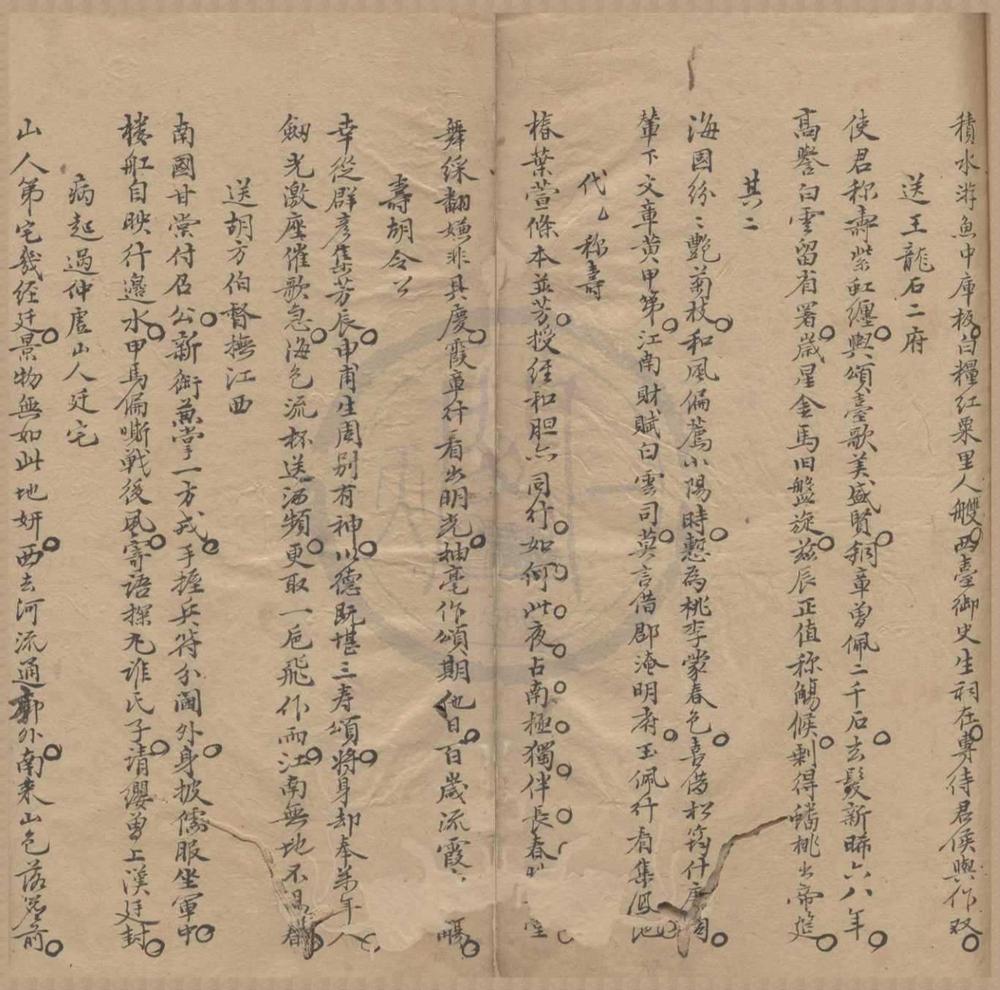 積水游魚中庫板白糧紅粟里人艘西臺御史生祠在專待君侯與作双
送王龍石二府
使君称壽紫缸纏輿頌臺歌美盛賢銅章曾佩二千石玄髮新晞六八年
高譽白雲留省署歲星金馬旧盤旋兹辰正值称觴候剩得蟠桃出帝筵
其二
海国紛〻艷菊枝和風偏薦小陽時慙為桃李蒙春色喜借松筠什
輦下文章黄甲第江南財賦白雲司莫言借郡淹明府玉佩行看集鳳池
代乩称壽
椿葉萱條本並芳授經和胆亦同行如何此夜占南極獨伴長春
舞綵翻嫌非具慶霞章行看出明光抽毫作頌期他日百歲流霞觴
壽胡令公
幸從群彦集芳辰申甫生周别有神以德既堪三寿頌將身却奉萬年人
劒光激座催歌急海色流杯送洒頻更取一巵飛作雨江南無地不昌春
送胡方伯督撫江西
南國甘棠付召公新銜兼掌一方戎手握兵符分閫外身披儒服坐軍中
楼舡自映行邉水甲馬偏嘶戰後風寄語探丸誰氏子請纓曽上漢廷封
病起過仲虚山人廷宅
山人第宅幾經廷景物無如此地妍西去河流通郭外南来山色落尊前